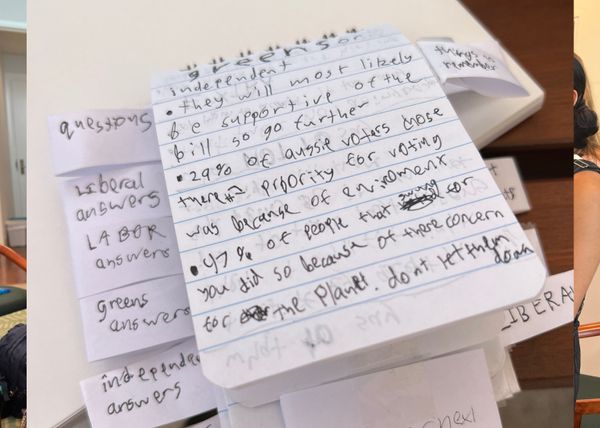 greens or
independent
• they will most likely
be supportive of the
bill so go further
• 29% of aussie voters chose
there #1 prority for voting
was because of enviroment
• 47% of people that swung
you did so because of there concern
for the Planet. don't let them
down
things to
remember
questions
Liberal
answers
LABOR
answers
greens
answers
independent
answers
LIBERAL